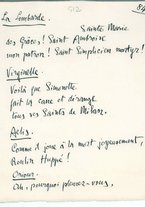 512
84
La Lombarde.
Sainte Marie
des Grâces! Saint Ambroise
mon patron! Saint Simplicien martyr!
Virginelle.
Voilà que Simonette
fait la cane et dérange
tous vos Saints de Milan.
Aelis.
Comme il joue à la mort joyeusement,
Roulin Huppé!
Orieur.
Oh, pourquoi pleurez-vous,